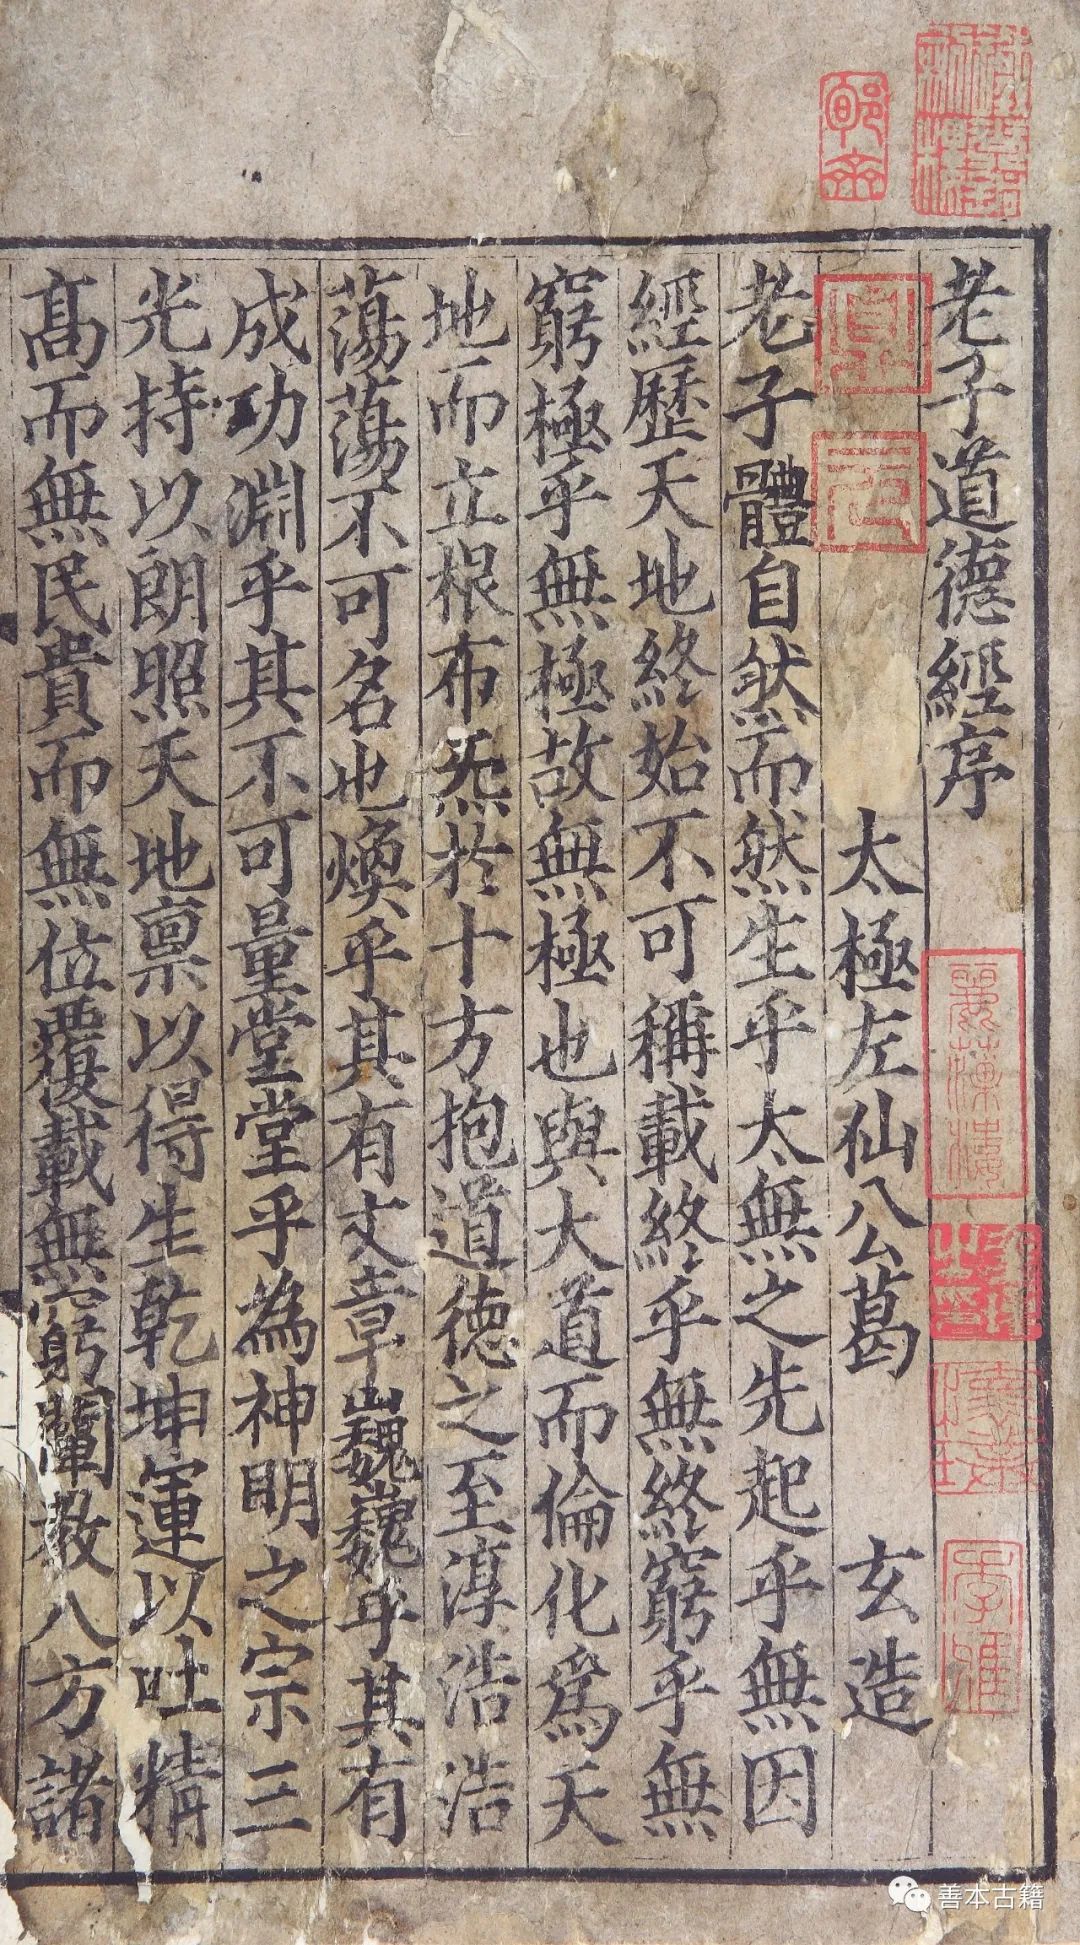 老子道德經序
太極左仙公葛 玄造
老子體自然而然生乎太無之先起乎無因
經歷天地終始不可稱載終乎無終窮乎無
窮極乎無極故無極也與大道而倫化爲天
地而立根布炁於十方抱道德之至淳浩浩
蕩蕩不可名也煥乎其有文章巍巍乎其有
成功淵乎其不可量堂堂乎為神明之宗三
光持以朗照天地稟以得生乾坤運以吐精
髙而無民貴而無位覆載無窮闡教八方諸
善本古籍